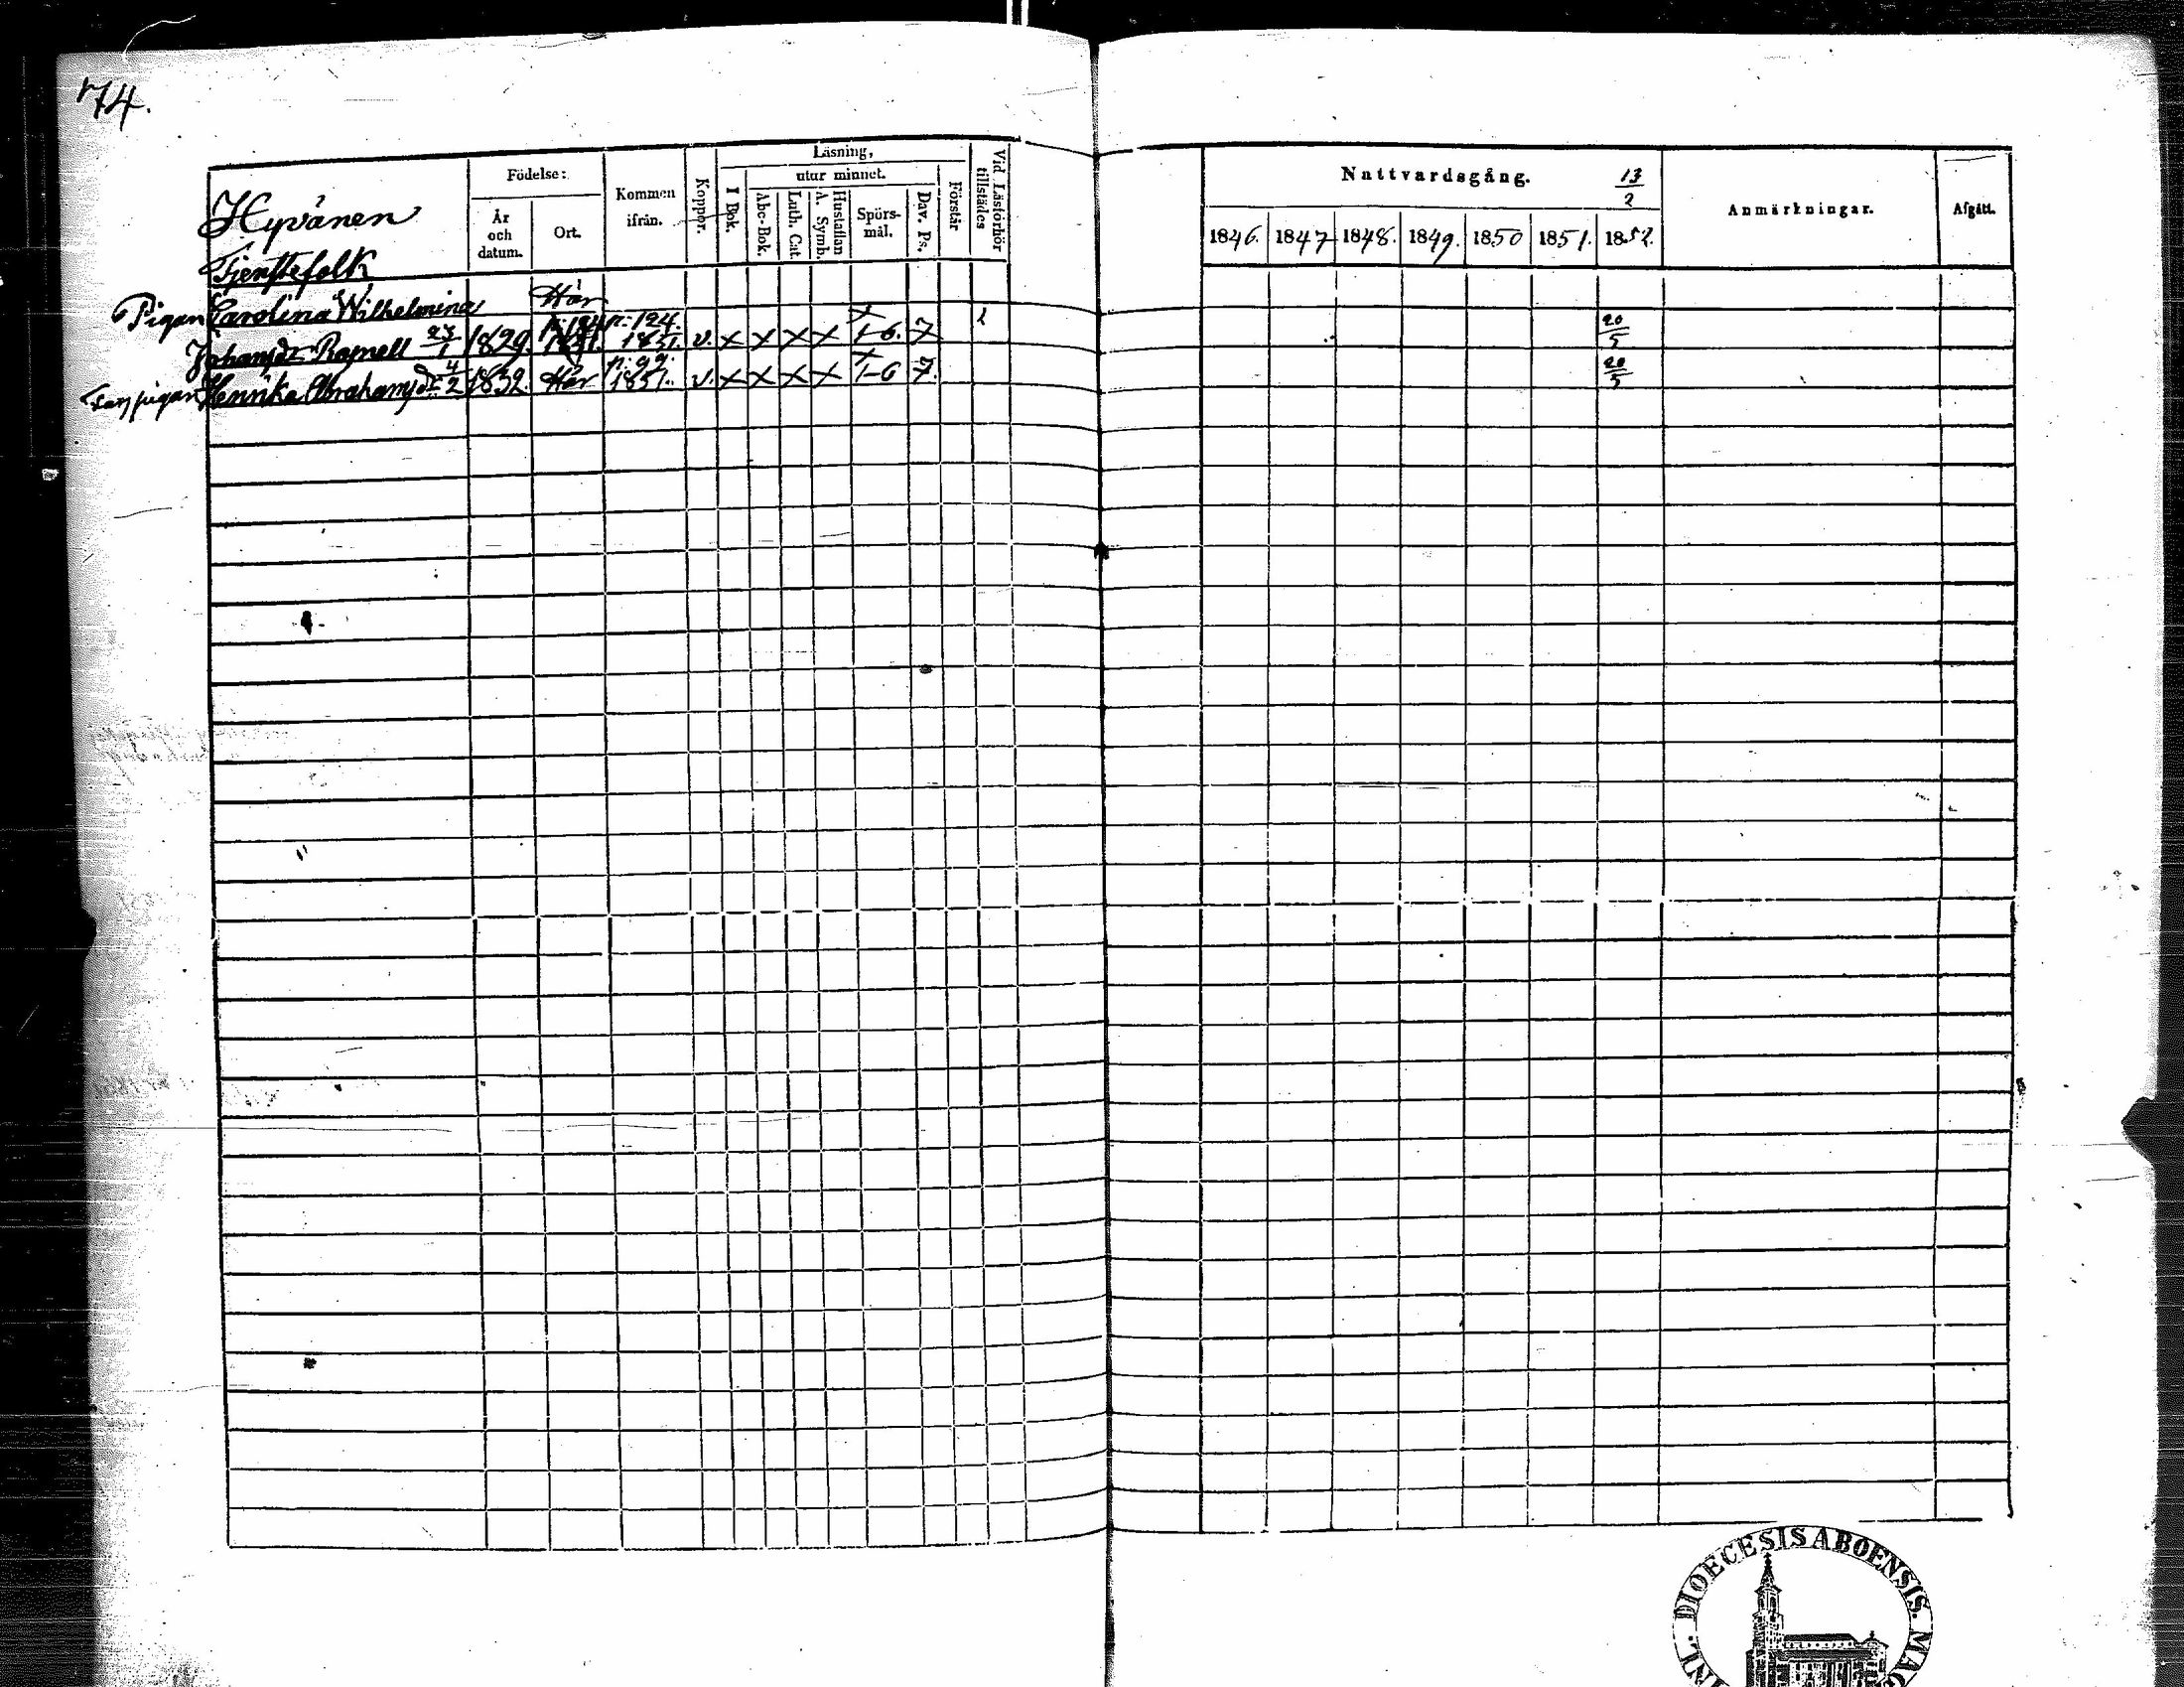 74.
Hyvänen
Tjenstefolk
Födelse:
År och datum.
Ort.
Kommen ifrån.
Koppor.
Läsning,
utur minnet.
I Bok.
Abc-Bok.
Luth. Cat.
A. Symb.
Hustaflan
Spörsmål.
Dav. Ps.
Förstår
Vid Läsförhör tillstädes
Nattvardsgång. 13/2
1846. 1847 1848. 1849. 1850 1851. 1852.
Anmärkningar.
Afgått.
Pigan Carolina Wilhelmina Här
Johansdr 23/1 1829. p. 124. 1851. v. x x x x x 1-6. 7 20/5
pigan Henrika Abrahamsdr 4/2 1832. Här 1851. v. x x x x x 1-6 7. 20/5
DIOECESIS ABOENSIS.